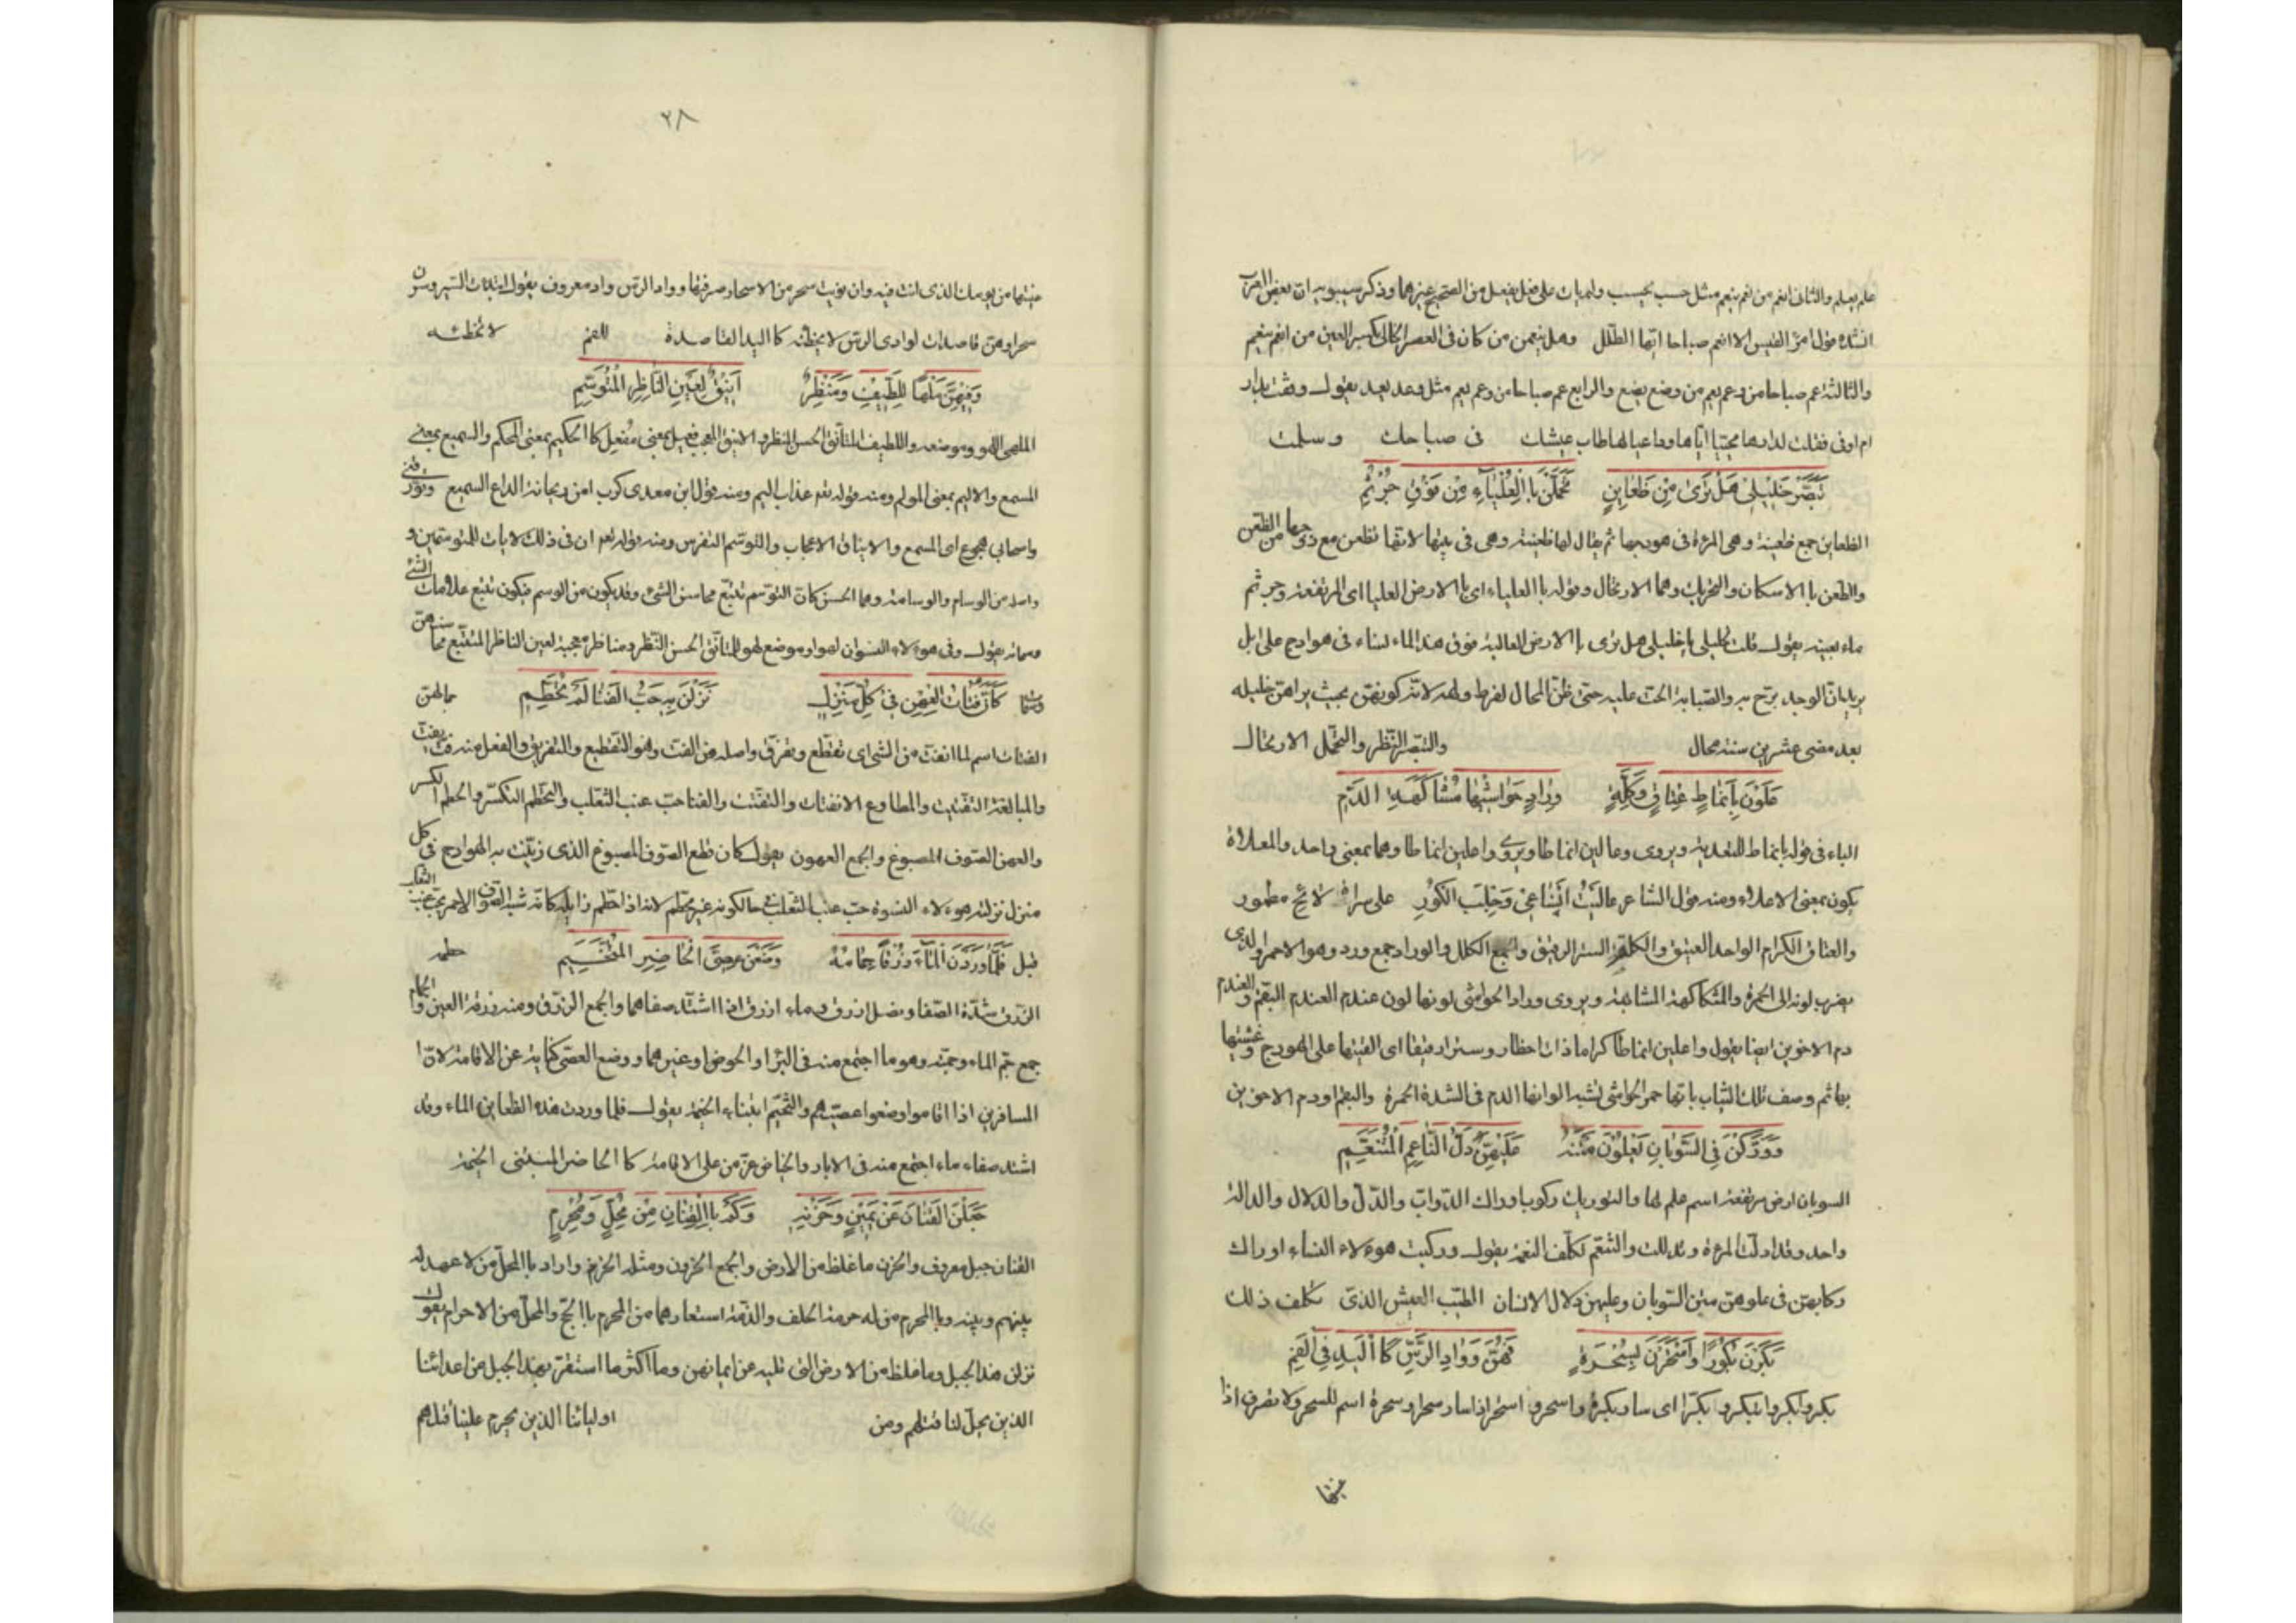 علم يعلم والثانى انعم من نعم ينعم مثل حسب يحسب ولم يات على فعل يفعل من الصحيح غيرهما وذكر سيبويه ان بعض العرب
انشده قول امرئ القيس الا انعم صباحا ايها الطلل وهل ينعمن من كان فى العصر الخالى بكسر العين من انعم ينعم
والثالثة عم صباحا من وعم يعم من وضع يضع والرابع عم صباحا من وعم يعم مثل وعد يعد يقول وقفت بدار
ام اوفى فقلت لدارها محييا اياها وداعيا لها طاب عيشك فى صباحك وسلمت
تَبَصَّرْ خَلِيلِى هَلْ تَرَى مِنْ ظَعَاينٍ تَحَمَّلْنَ باالْعَلْيَاءِ مِنْ فَوْقِ جُرْثُمِ
الظعاين جمع ظعينة وهى المرءة فى هودجها ثم يقال لها ظعينة وهى فى بيتها لانها تظعن مع زوجها من الظعن
والظعن باالاسكان والتحريك وهما الارتحال وقوله باالعلياء اى باالارض العليا اى المرتفعة وجرثم
ماء بعينه يقول فقلت لخليلى يا خليلى هل ترى باالارض العالية فوق هذا الماء نساء فى هوادج على ابل
يريد ان الوجد برح به والصبابة الحت عليه حتى ظن المحال لفرط ولهه لانه كونهن بحيث يراهن خليله
بعد مضى عشرين سنة محال والتبصر النظر والتحمل الارتحال
عَلَوْنَ بِاَنْمَاطٍ عِتَاقٍ وَكِلَّةٍ وِرَادٍ حَوَاشِيْهَا مُشَاكَهَةِ الدَّمِ
الباء فى قوله بانماط للتعدية ويروى وعالين انماطا ويروى واعلين انماطا وهما بمعنى واحد والمعلاة
يكون بمعنى الاعلاء ومنه قول الشاعر عاليت انساعى وجلب الكور على سراة لائح ممطور
والعتاق الكرام الواحد العتيق والكلة الستر الرقيق والجمع الكلل والوراد جمع ورد وهو الاحمر والذى
يضرب لونه الى الحمرة والمشاكهة المشابهة ويروى وراد الحواشى لونها لون عندم العندم البقم والعندم
دم الاخوين ايضا يقول واعلين انماطا كراما ذات اخطار وسترا رقيقا اى القينها على الهودج وغشينها
بها ثم وصف تلك الثياب بانها حمر الحواشى تشبه الوانها الدم فى الشدة الحمرة والبقم او دم الاخوين
وَوَرَّكْنَ فِى السُّوبَانِ يَعْلَوْنَ مَتْنَهُ عَلَيْهِنَّ دَلُّ النَّاعِمِ الْمُتَنَعِّمِ
السوبان ارض مرتفعة اسم علم لها والتوريك ركوب اوراك الدواب والدل والدلال والدالة
واحد وقد ادلت المرءة وتدللت والتنعم تكلف النعمة يقول وركبت هوءلاء النساء اوراك
ركابهن فى علوهن متن السوبان وعليهن دلال الانسان الطيب العيش الذى تكلف ذلك
بَكَرْنَ بُكُورًا وَاسْتَحَرْنَ بِسُحْرَةٍ فَهُنَّ وَوَادِ الرَّسِّ كَاالْيَدِ فِى الْفَمِ
بكر وابكر وابتكر وبكر اى سار بكرة واسحر واستحر اذا سار سحرا وسحرة اسم للسحر ولا يصرف اذا
عنيتها
٢٨
عنيتها من يومك الذى انت فيه وان عنيت سحر من الاسحار صرفتها وواد الرس واد معروف يقول ابتداءن السير وسرن
سحرا وهن قاصدات لوادى الرس لا يخطئنه كا اليد القاصدة للفم لا تخطئه
وَفِيْهِنَّ مَلْهًا لِلَّطِيْفِ وَمَنْظَرٌ اَنِيْقٌ لِعَيْنِ النَّاظِرِ الْمُتَوَسِّمِ
الملهى اللهو وموضعه واللطيف المتانق الحسن المنظر والانيق المعجب فعيل بمعنى مفعل كا الحكيم بمعنى المحكم والسميع بمعنى
المسمع والاليم بمعنى المولم ومنه قوله تعم عذاب اليم ومنه قول ابن معدى كرب امن ريحانة الداع السميع يورقنى
واصحابى هجوع اى المسمع والايناق الاعجاب والتوسم التفرس ومنه قوله تعم ان فى ذلك لايات للمتوسمين و
واصله من الوسام والوسامة وهما الحسن كان التوسم تتبع محاسن الشئ وقد يكون من الوسم فيكون تتبع علامات الشئ
وسماته يقول وفى هوءلاء النسوان لهو او موضع لهو للمتانق الحسن النظر ومناظر معجبة لعين الناظر المتتبع محاسنهن
وسمات جمالهن
كَاَنَّ فُتَاتَ الْعِهْنِ فِى كُلِّ مَنْزِلٍ نَزَلْنَ بِهِ حَبُّ الْفَنَا لَمْ يُحَطَّمِ
الفتات اسم لما انفت من الشى اى تقطع وتفرق واصله من الفت وهو التقطيع والتفريق والفعل منه فت يفت
والمبالغة التفتيت والمطاوع الانفتات والتفتت والفنا حب عنب الثعلب والتحطم التكسر والحطم الكسر
والعهن الصوف المصبوغ والجمع العهون يقول كان قطع الصوف المصبوغ الذى زينت به الهوادج فى كل
منزل نزلته هوءلاء النسوة حب عنب الثعلب فى حال كونه غير محطم لانه اذا حطم زايله كانه شبه الصوف الاحمر بحب عنب الثعلب
قبل حطمه
فَلَمَّا وَرَدْنَ الْمَاءَ زُرْقًا جِمَامُهُ وَضَعْنَ عِصِىَّ الْحَاضِرِ الْمُتَخَيِّمِ
الزرق شدة الصفا ونصل ازرق وماء ازرق اذا اشتد صفاهما والجمع الزرق ومنه زرقة العين والجمام
جمع جم الماء وجمته وهو ما اجتمع منه فى البئر او الحوض او غيرهما ووضع العصى كناية عن الاقامة لان
المسافرين اذا اقاموا وضعوا عصيهم والتخيم ابتناء الخيمة يقول فلما وردت هذه الظعاين الماء وقد
اشتد صفاء ماء اجتمع منه فى الابار والحياض عزمن على الاقامة كا الحاضر المبتنى الخيمة
جَعَلْنَ الْقَنَانَ عَنْ يَمِيْنٍ وَحَزْنَهُ وَكَمْ باالْقَنَانِ مِنْ مُحِلٍّ وَمُحْرِمِ
القنان جبل معروف والحزن ما غلظ من الارض والجمع الحزون ومثله الحزيز واراد باالمحل من لا عهد له
بينهم وبينه وباالمحرم من له حرمة الحلف والذمة استعارهما من المحرم باالحج والمحل من الاحرام يقول
نزلن هذا الجبل وما غلظ من الارض التى تليه عن ايمانهن وما اكثر ما استقر بهذا الجبل من اعدائنا
الذين يحل لنا قتلهم ومن اوليائنا الذين يحرم علينا قتلهم